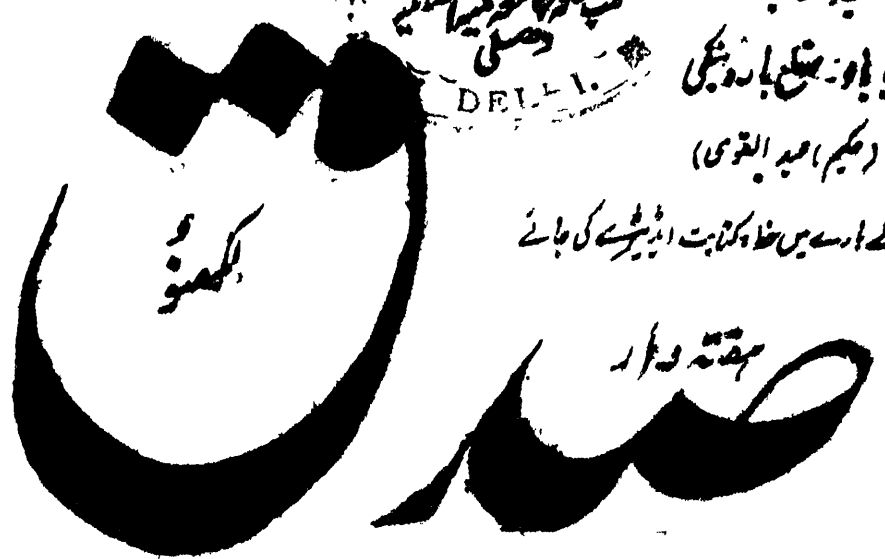 دھلی
DELHI.
ضلع بارہ بنکی
(حکیم) عبد القوی)
بارے میں خط و کتابت ایڈیٹر سے کی جائے
ہفتہ وار
صدق
لکھنؤ